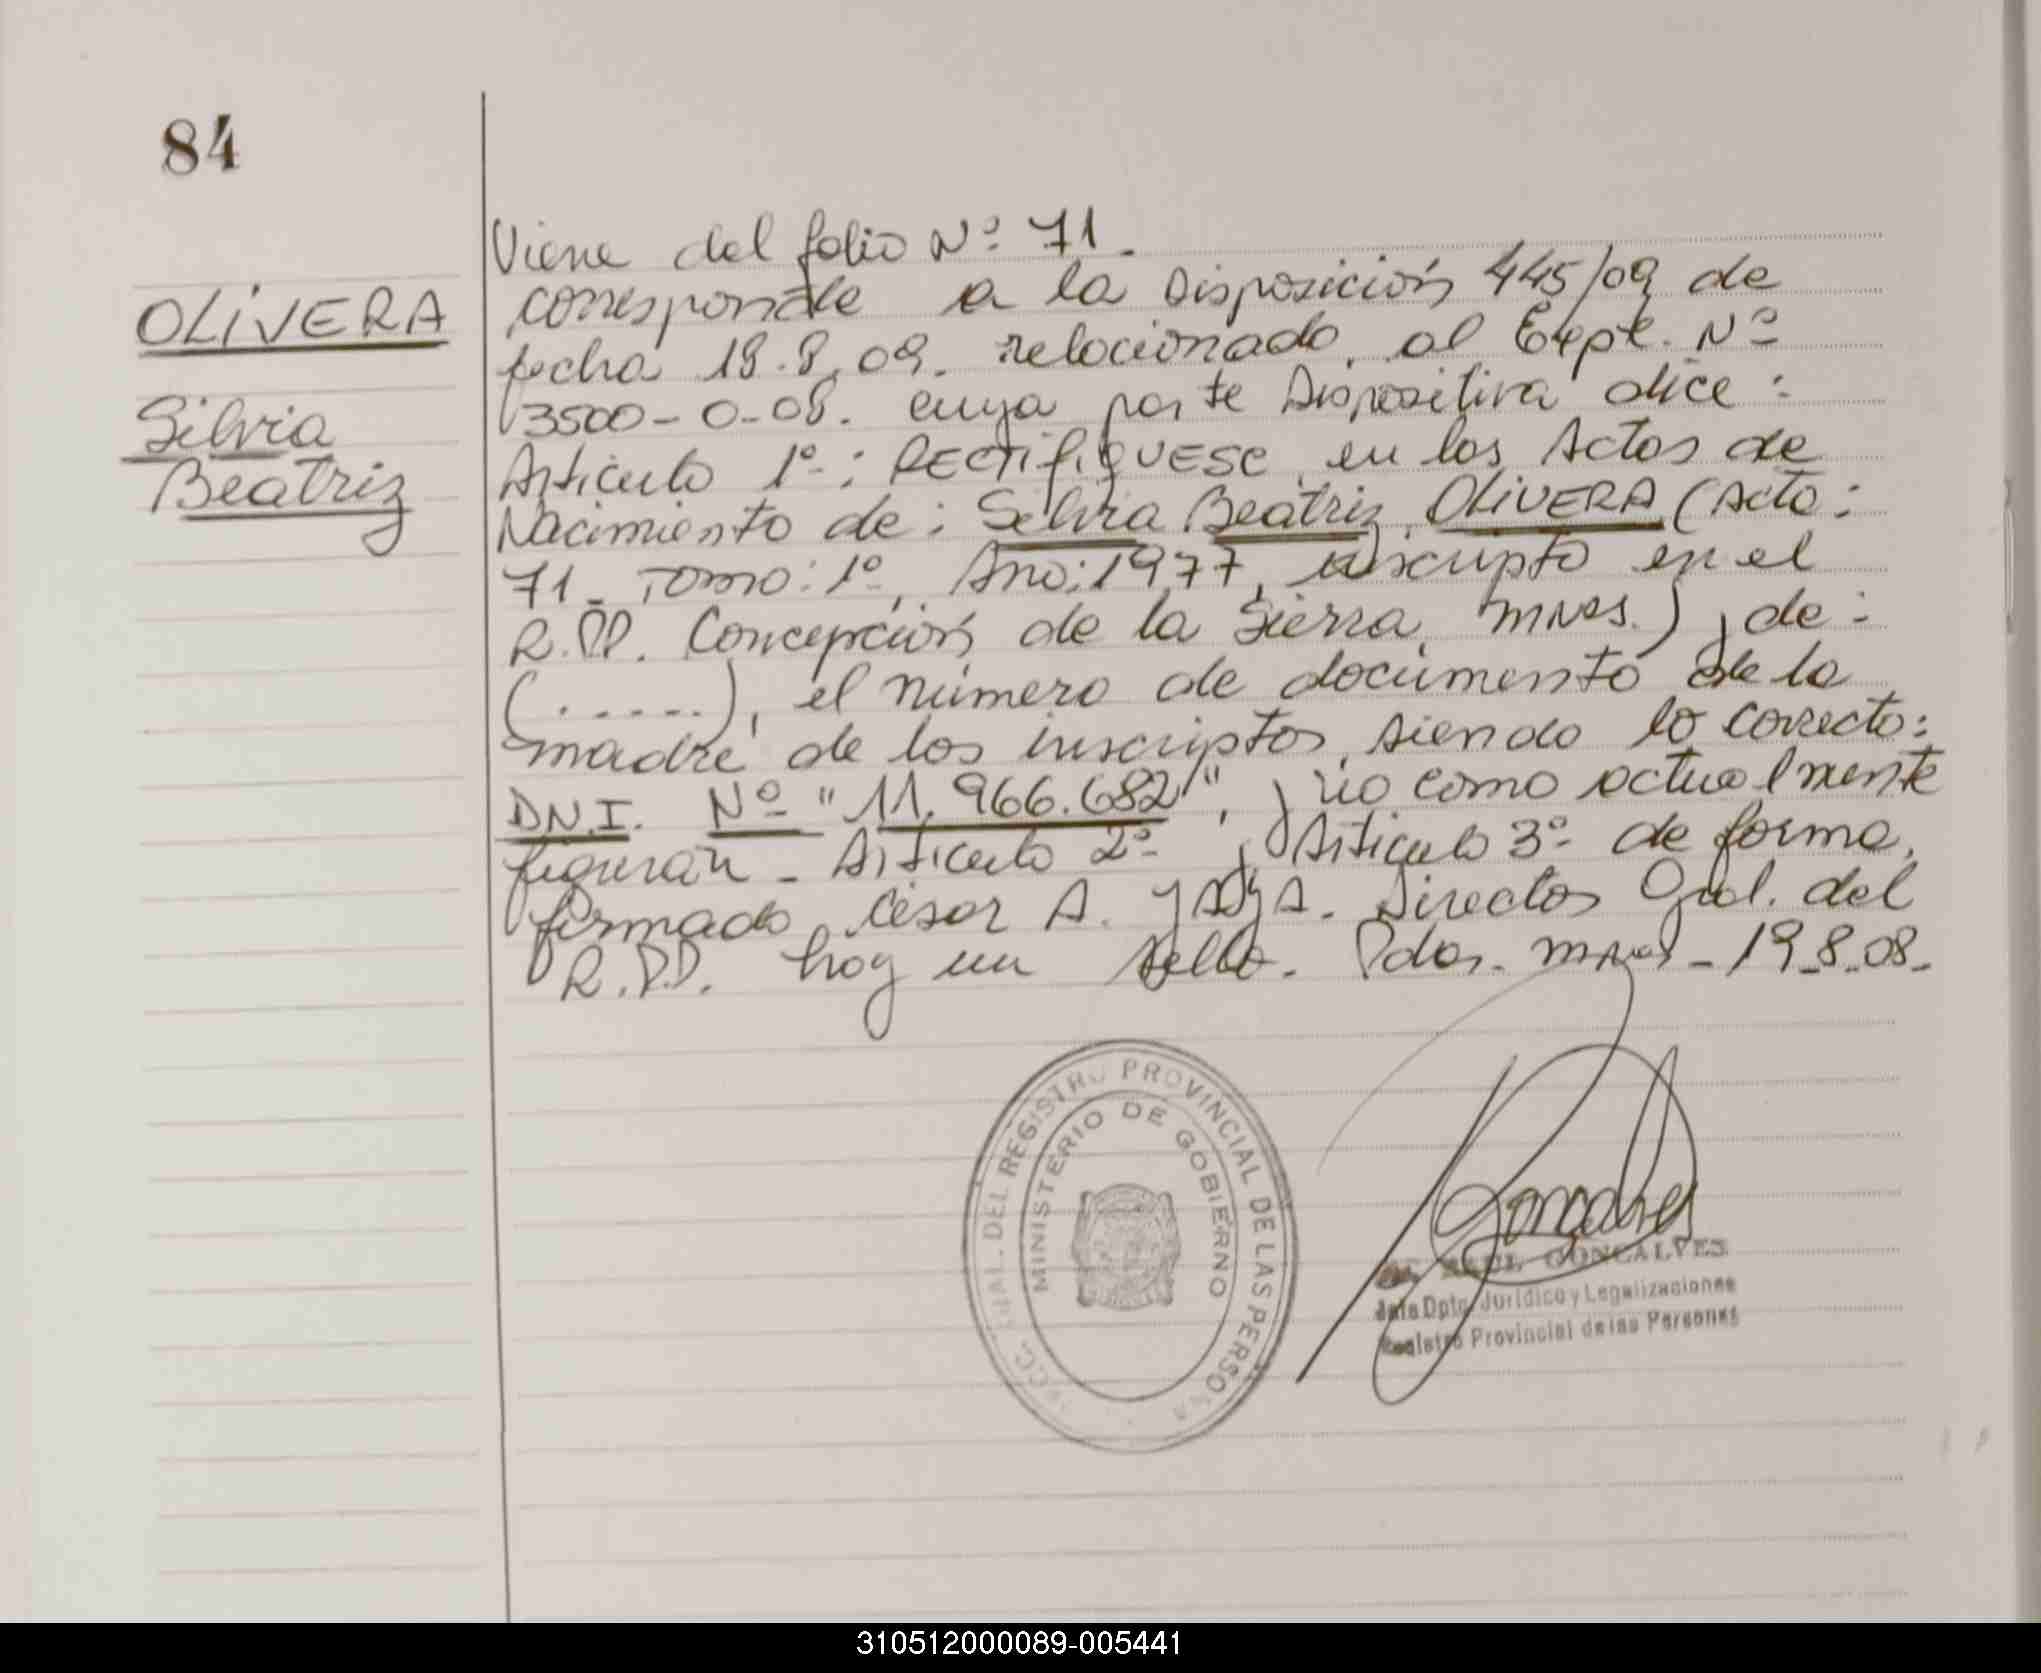 84
OLIVERA
Silvia
Beatriz
Viene del folio Nº 71.
corresponde a la Disposición 445/09 de
fecha 19.8.09. relacionado al Expt. Nº
3500-0-08. cuya parte Dispositiva dice:
Artículo 1º: RECTIFIQUESE en los Actas de
Nacimiento de: Silvia Beatriz OLIVERA (Acta:
71_ Tomo: 1º, Año: 1977, inscripto en el
R.P.P. Concepción de la Sierra, Mnes.), de:
(......), el número de documento de la
madre de los inscriptos, siendo lo correcto:
DN.I. Nº "11.966.682", y no como actualmente
figuran_ Artículo 2º y Artículo 3º de forma,
firmado César A. Director Gral. del
R.P.P. hay un sello. Pdas. Mnes_19_8_08_
DEL REGISTRO PROVINCIAL DE LAS PERSONA
MINISTERIO DE GOBIERNO
RAUL GONCALVES
Jefe Dpto. Jurídico y Legalizaciones
Registro Provincial de las Personas
310512000089-005441